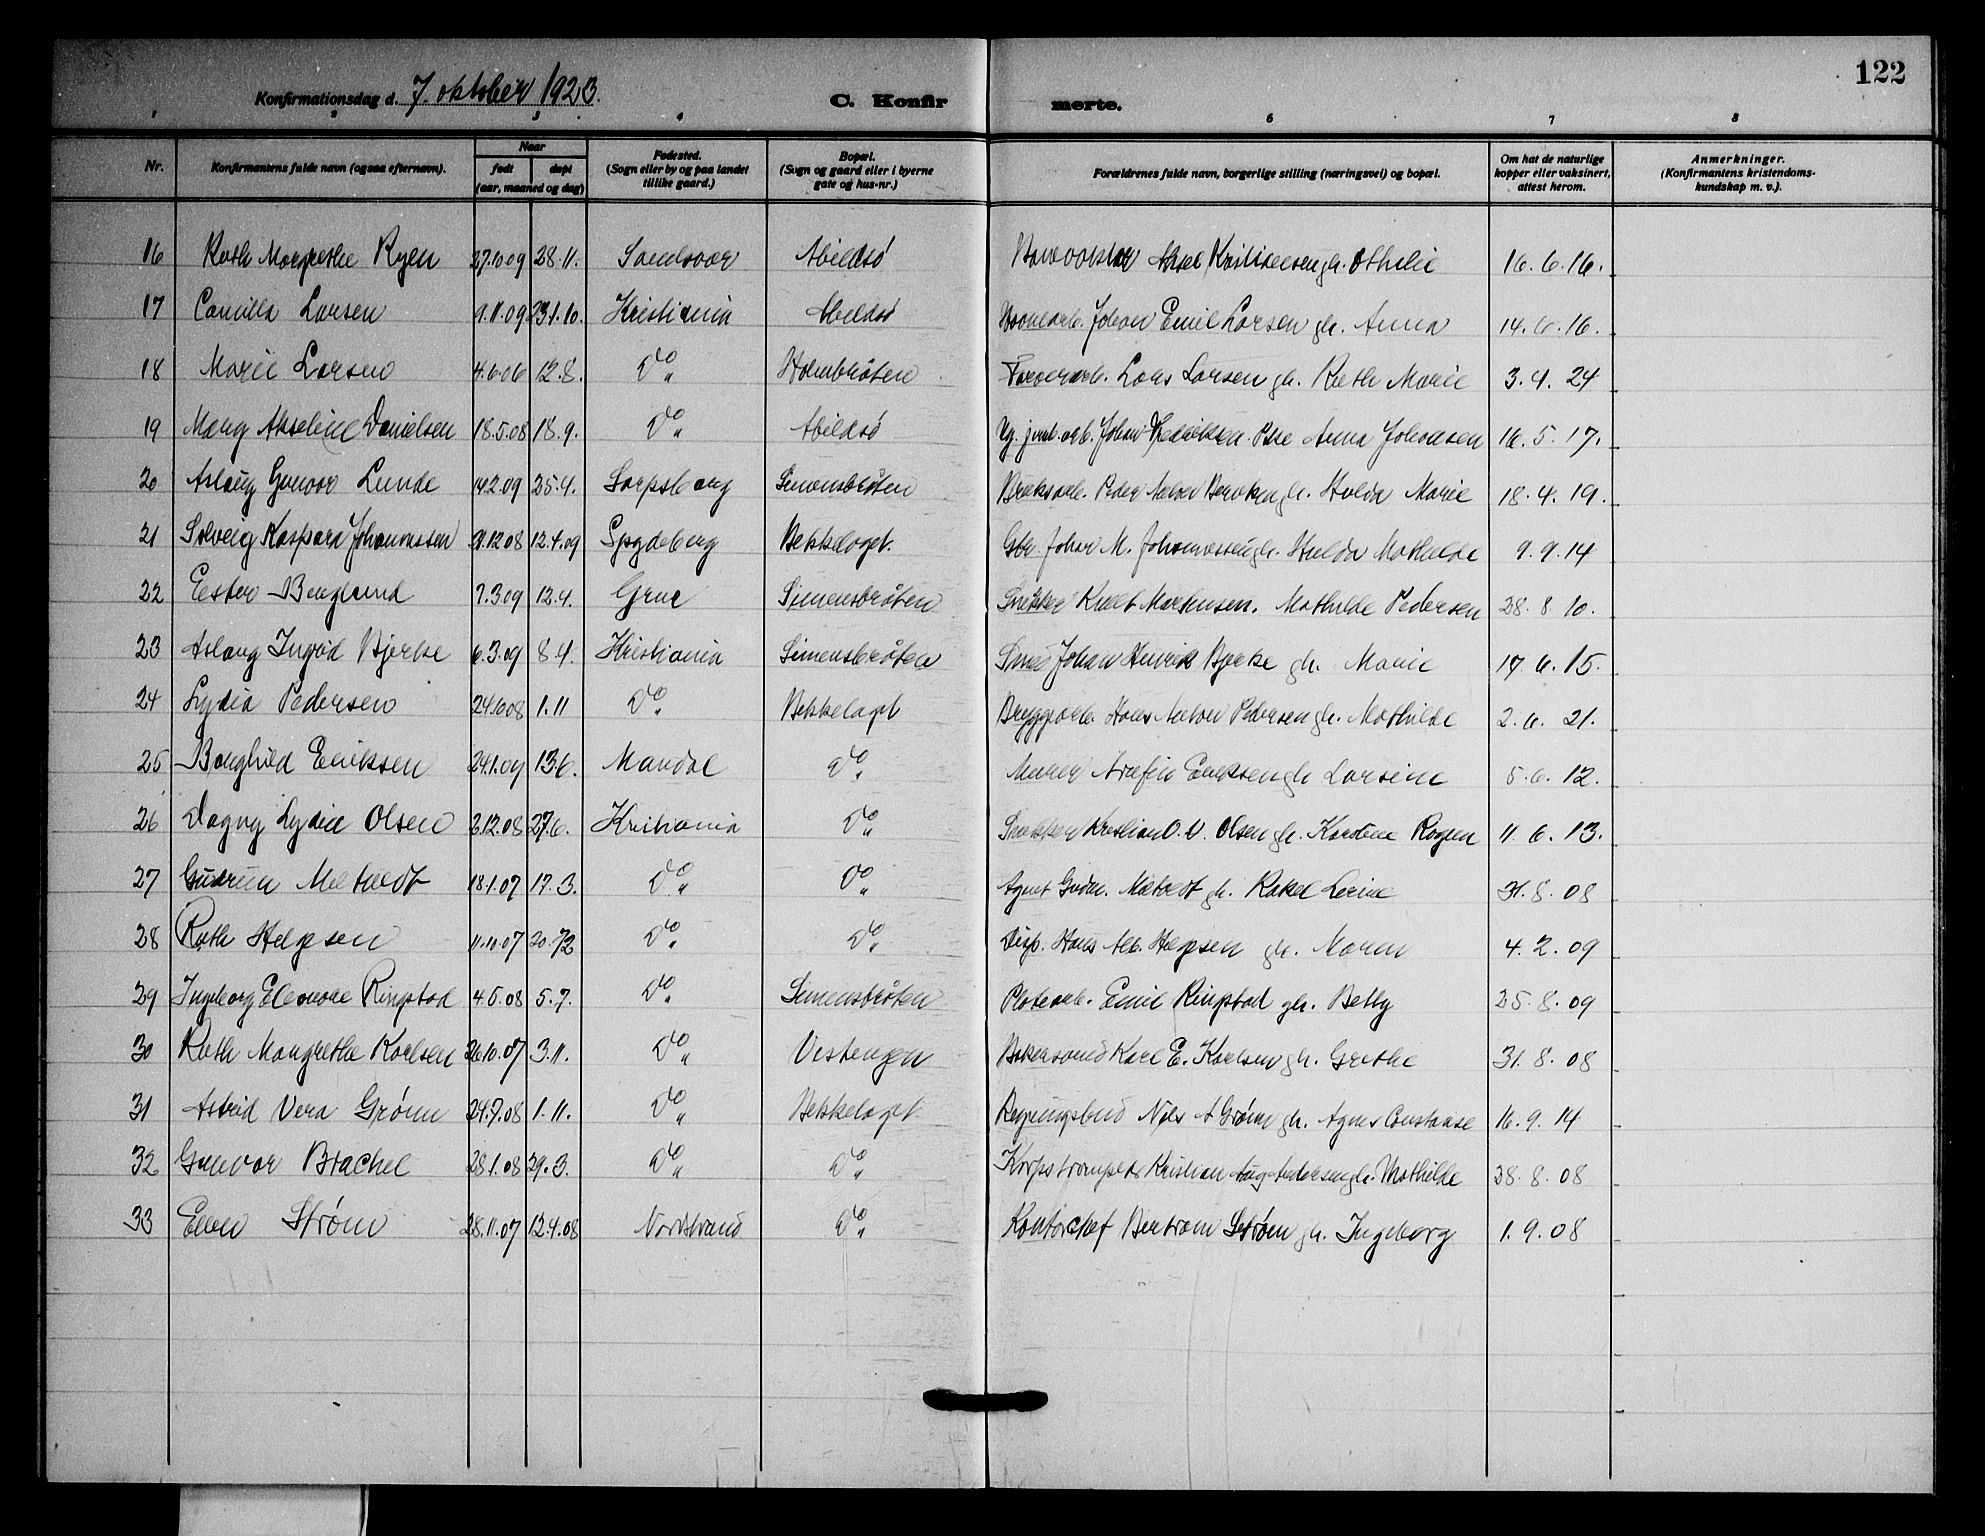 122
Konfirmationsdag d. 7. oktober 1923.
C. Konfirmerte.
1 2 3 4 6 7 8
Nr. Konfirmantens fulde navn (ogsaa efternavn). Naar født døpt (aar, maaned og dag) Fødested. (Sogn eller by og paa landet tillike gaard.) Bopæl. (Sogn og gaard eller i byerne gate og hus-nr.) Forældrenes fulde navn, borgerlige stilling (næringsvei) og bopæl. Om hat de naturlige kopper eller vaksinert, attest herom. Anmerkninger. (Konfirmantens kristendoms-kundskap m. v.).
16 Ruth Margrethe Ryen 27.10.09 28.11. Sandsvær Abildsø Othelie 16.6.16.
17 Camilla Larsen 9.11.09 23.1.10. Kristiania Abildsø Johan Emil Larsen gh. Anna 14.6.16.
18 Marie Larsen 4.6.06 12.8. Do " Holmbråten Lars Larsen gh. Ruth Marie 3.4.24
19 Akseline Danielsen 18.5.08 18.9. Do " Abildsø Ug. jernb.arb. Johan Fredriksen. Pke Anna Johansen 16.5.17.
20 Aslaug Gunvor Lunde 14.2.09 25.4. Sarpsborg Simensbråten Bruksarb. Peder Anton gh. Hulda Marie 18.4.19.
21 Solveig Kaspara Johannessen 21.12.08 12.4.09 Spydeberg Bekkelaget. Gbr. Johan M. Johannessen gh. Hulda Mathilde 9.9.14
22 Ester Berglund 7.3.09 12.4. Grue Simensbråten Snekker Knut Martinsen. Mathilde Pedersen 28.8.10.
23 Aslaug Ingrid Bjerke 6.3.09 8.4. Kristiania Simensbråten Smed Johan Henrik Bjerke gh. Marie 17.6.15.
24 Lydia Pedersen 24.6.08 1.11 Do " Bekkelaget Bryggearb. Hans Anton Pedersen gh. Mathilde 2.6.21.
25 Borghild Eriksen 24.1.09 13.6. Mandal Do " Murer Eriksen gh Larsine 5.6.12.
26 Dagny Lydia Olsen 2.12.08 27.6. Kristiania Do " Snekker Kristian O. V. Olsen gh. Karoline Rogen 11.6.13.
27 Gudrun Metvedt 18.1.07 17.3. Do " Do " Agent Gudm. Metvedt gh. Rakel Lovine 31.8.08
28 Ruth Helgesen 11.10.07 20.72 Do " Do " Disp. Hans Alb. Helgesen gh. Maren 4.2.09
29 Ingeborg Eleonore Ringstad 4.5.08 5.7. Do " Simensbråten Platearb. Emil Ringstad gh. Betty 25.8.09
30 Ruth Margrethe Karlsen 26.10.07 3.11. Do " Vestengen Bakersvend Karl E. Karlsen gh. Grethe 31.8.08
31 Astrid Vera Grønn 24.7.08 1.11. Do " Bekkelaget Regningsbud Nils A Grønn gh. Agnes Constanse 16.9.14
32 Gunvor Brachel 28.1.08 29.3. Do " Do " Korpstrompeter Kristian Aug. Andersen gh. Mathilde 28.8.08
33 Ellen Strøm 28.11.07 12.4.08 Nordstrand Do " Kontorchef Bertram Strøm gh. Ingeborg 1.9.08